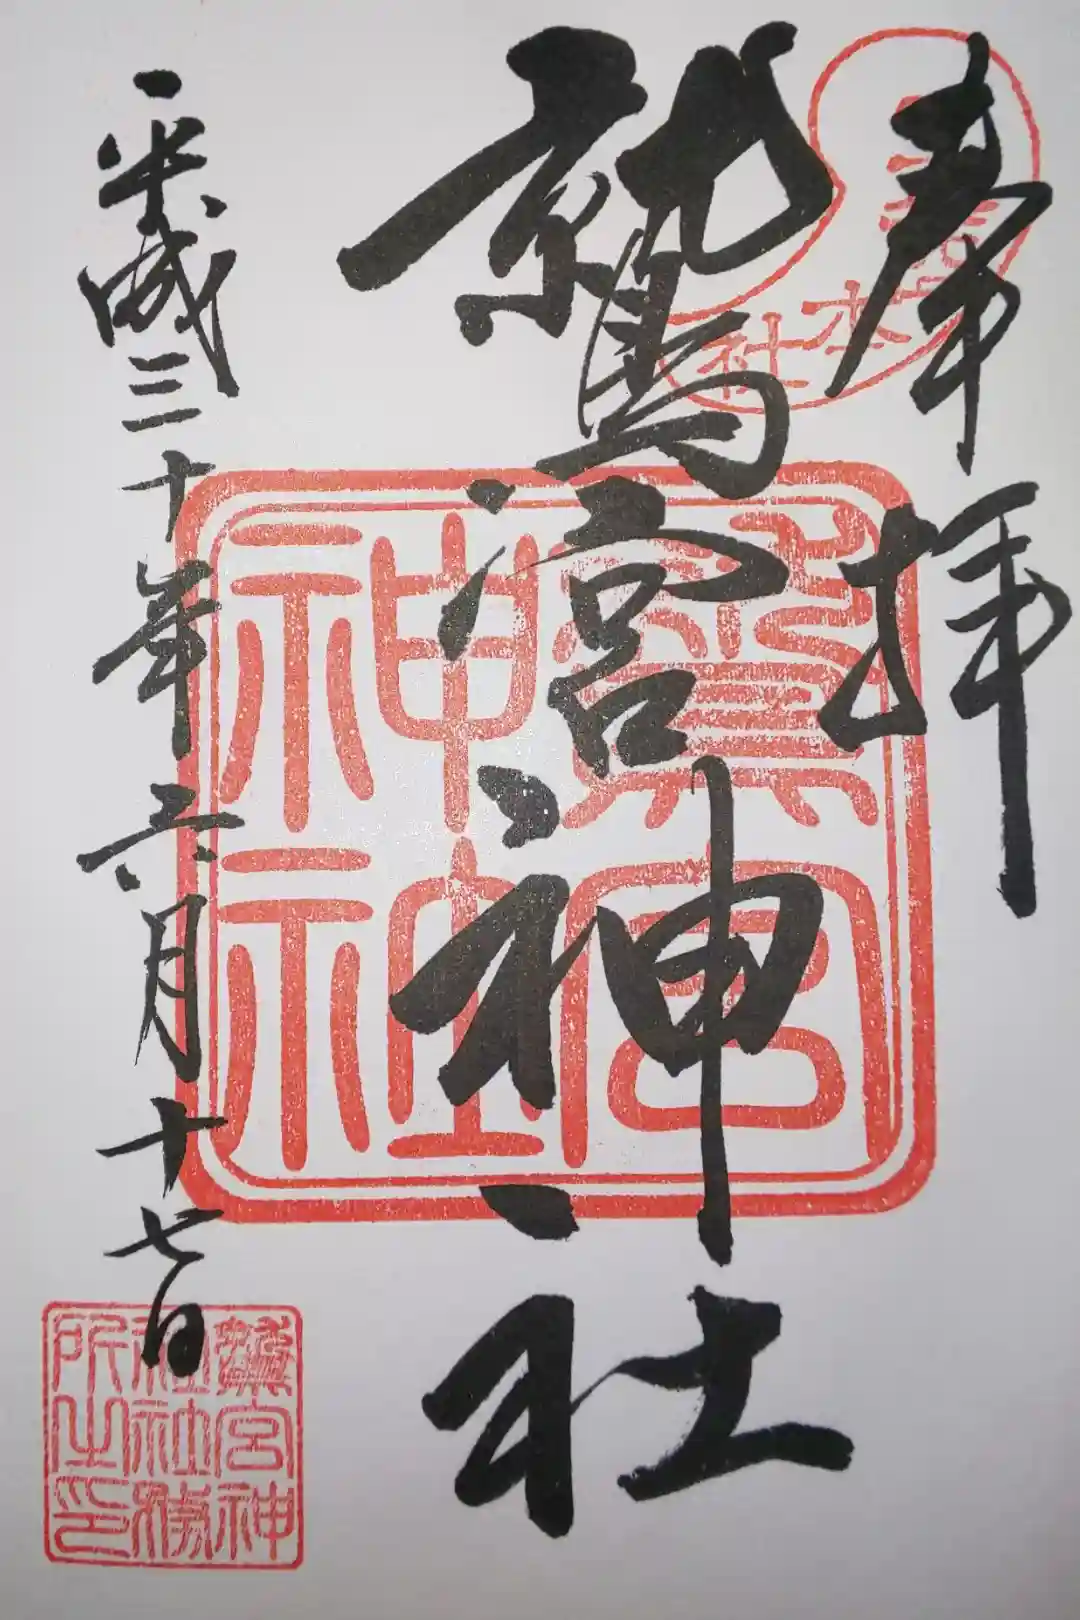 奉拝
鷲宮神社
平成三十年六月十七日
本社
鷲宮神社
鷲宮神
社社務
所之印